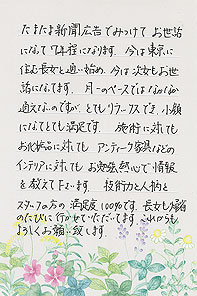 たまたま新聞広告でみつけて お世話
になって 7年程になります。今は東京に
住む長女と通い始め、今は次女もお世
話になってます。月一のペースではなかなか
通えないのですが、とてもリラックスでき、小顔
になってとても満足です。 施術に対しても
お化粧品に対しても アンティーク家具などの
インテリアに対しても お勉強熱心で情報
を教えて下さいます。 技術力と人柄と
スタッフの方の満足度100%です。長女も帰省
のたびに行かせていただいてます。これからも
よろしくお願い致します。